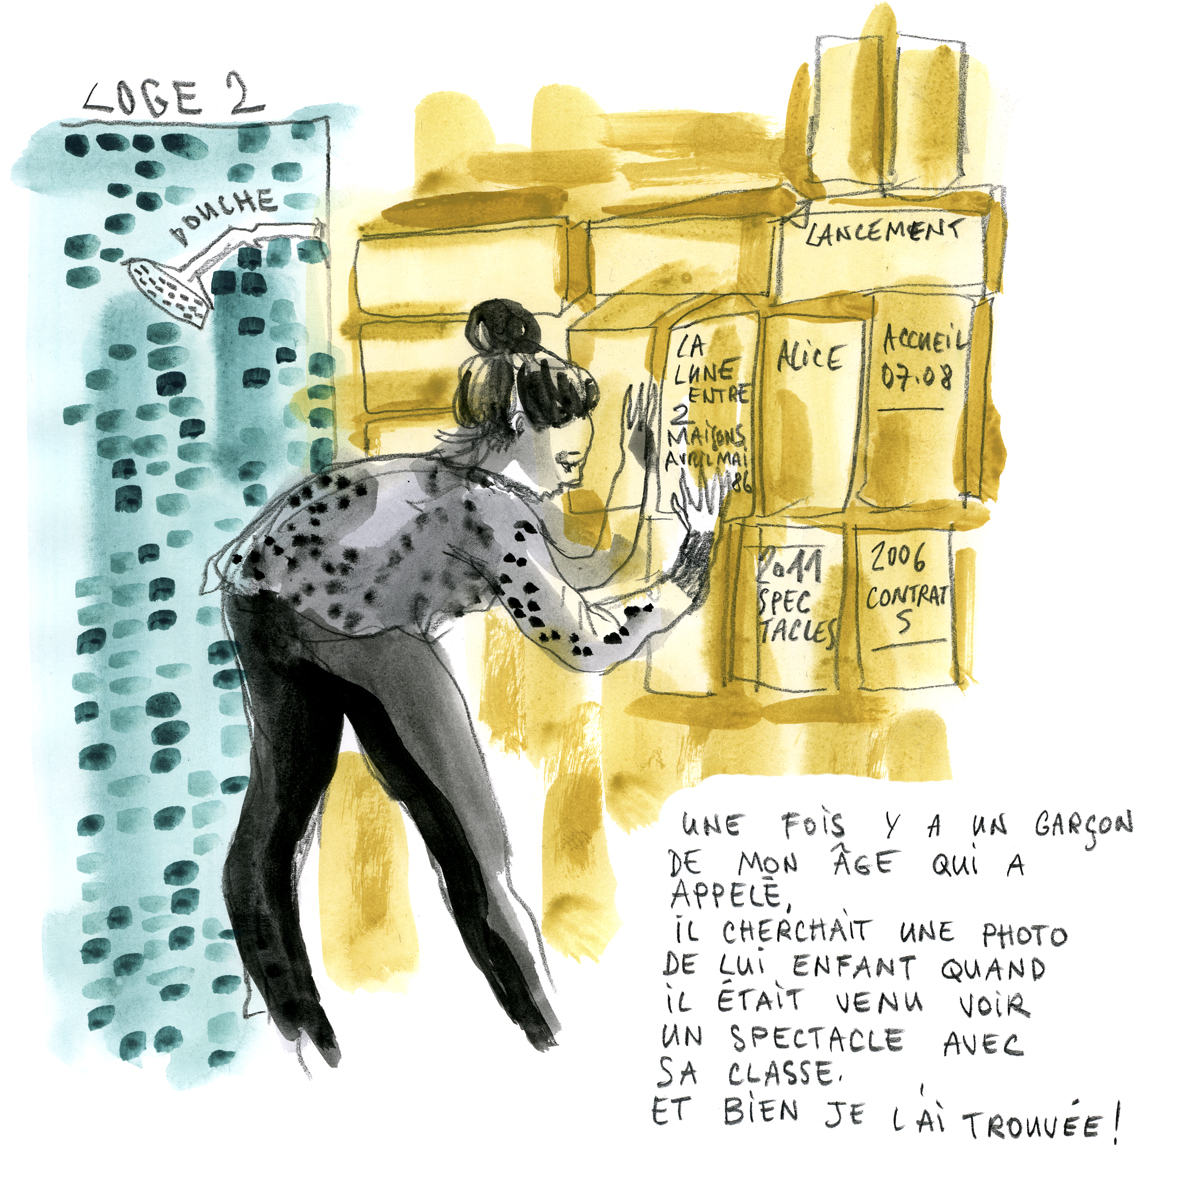 LOGE 2
DOUCHE
LANCEMENT
LA
LUNE
ENTRE
2
MAISONS
AVRIL MAI
86
ALICE
ACCUEIL
07.08
2011
SPEC
TACLES
2006
CONTRAT
S
UNE FOIS Y A UN GARÇON
DE MON ÂGE QUI A
APPELÉ,
IL CHERCHAIT UNE PHOTO
DE LUI ENFANT QUAND
IL ÉTAIT VENU VOIR
UN SPECTACLE AVEC
SA CLASSE.
ET BIEN JE L'AI TROUVÉE!